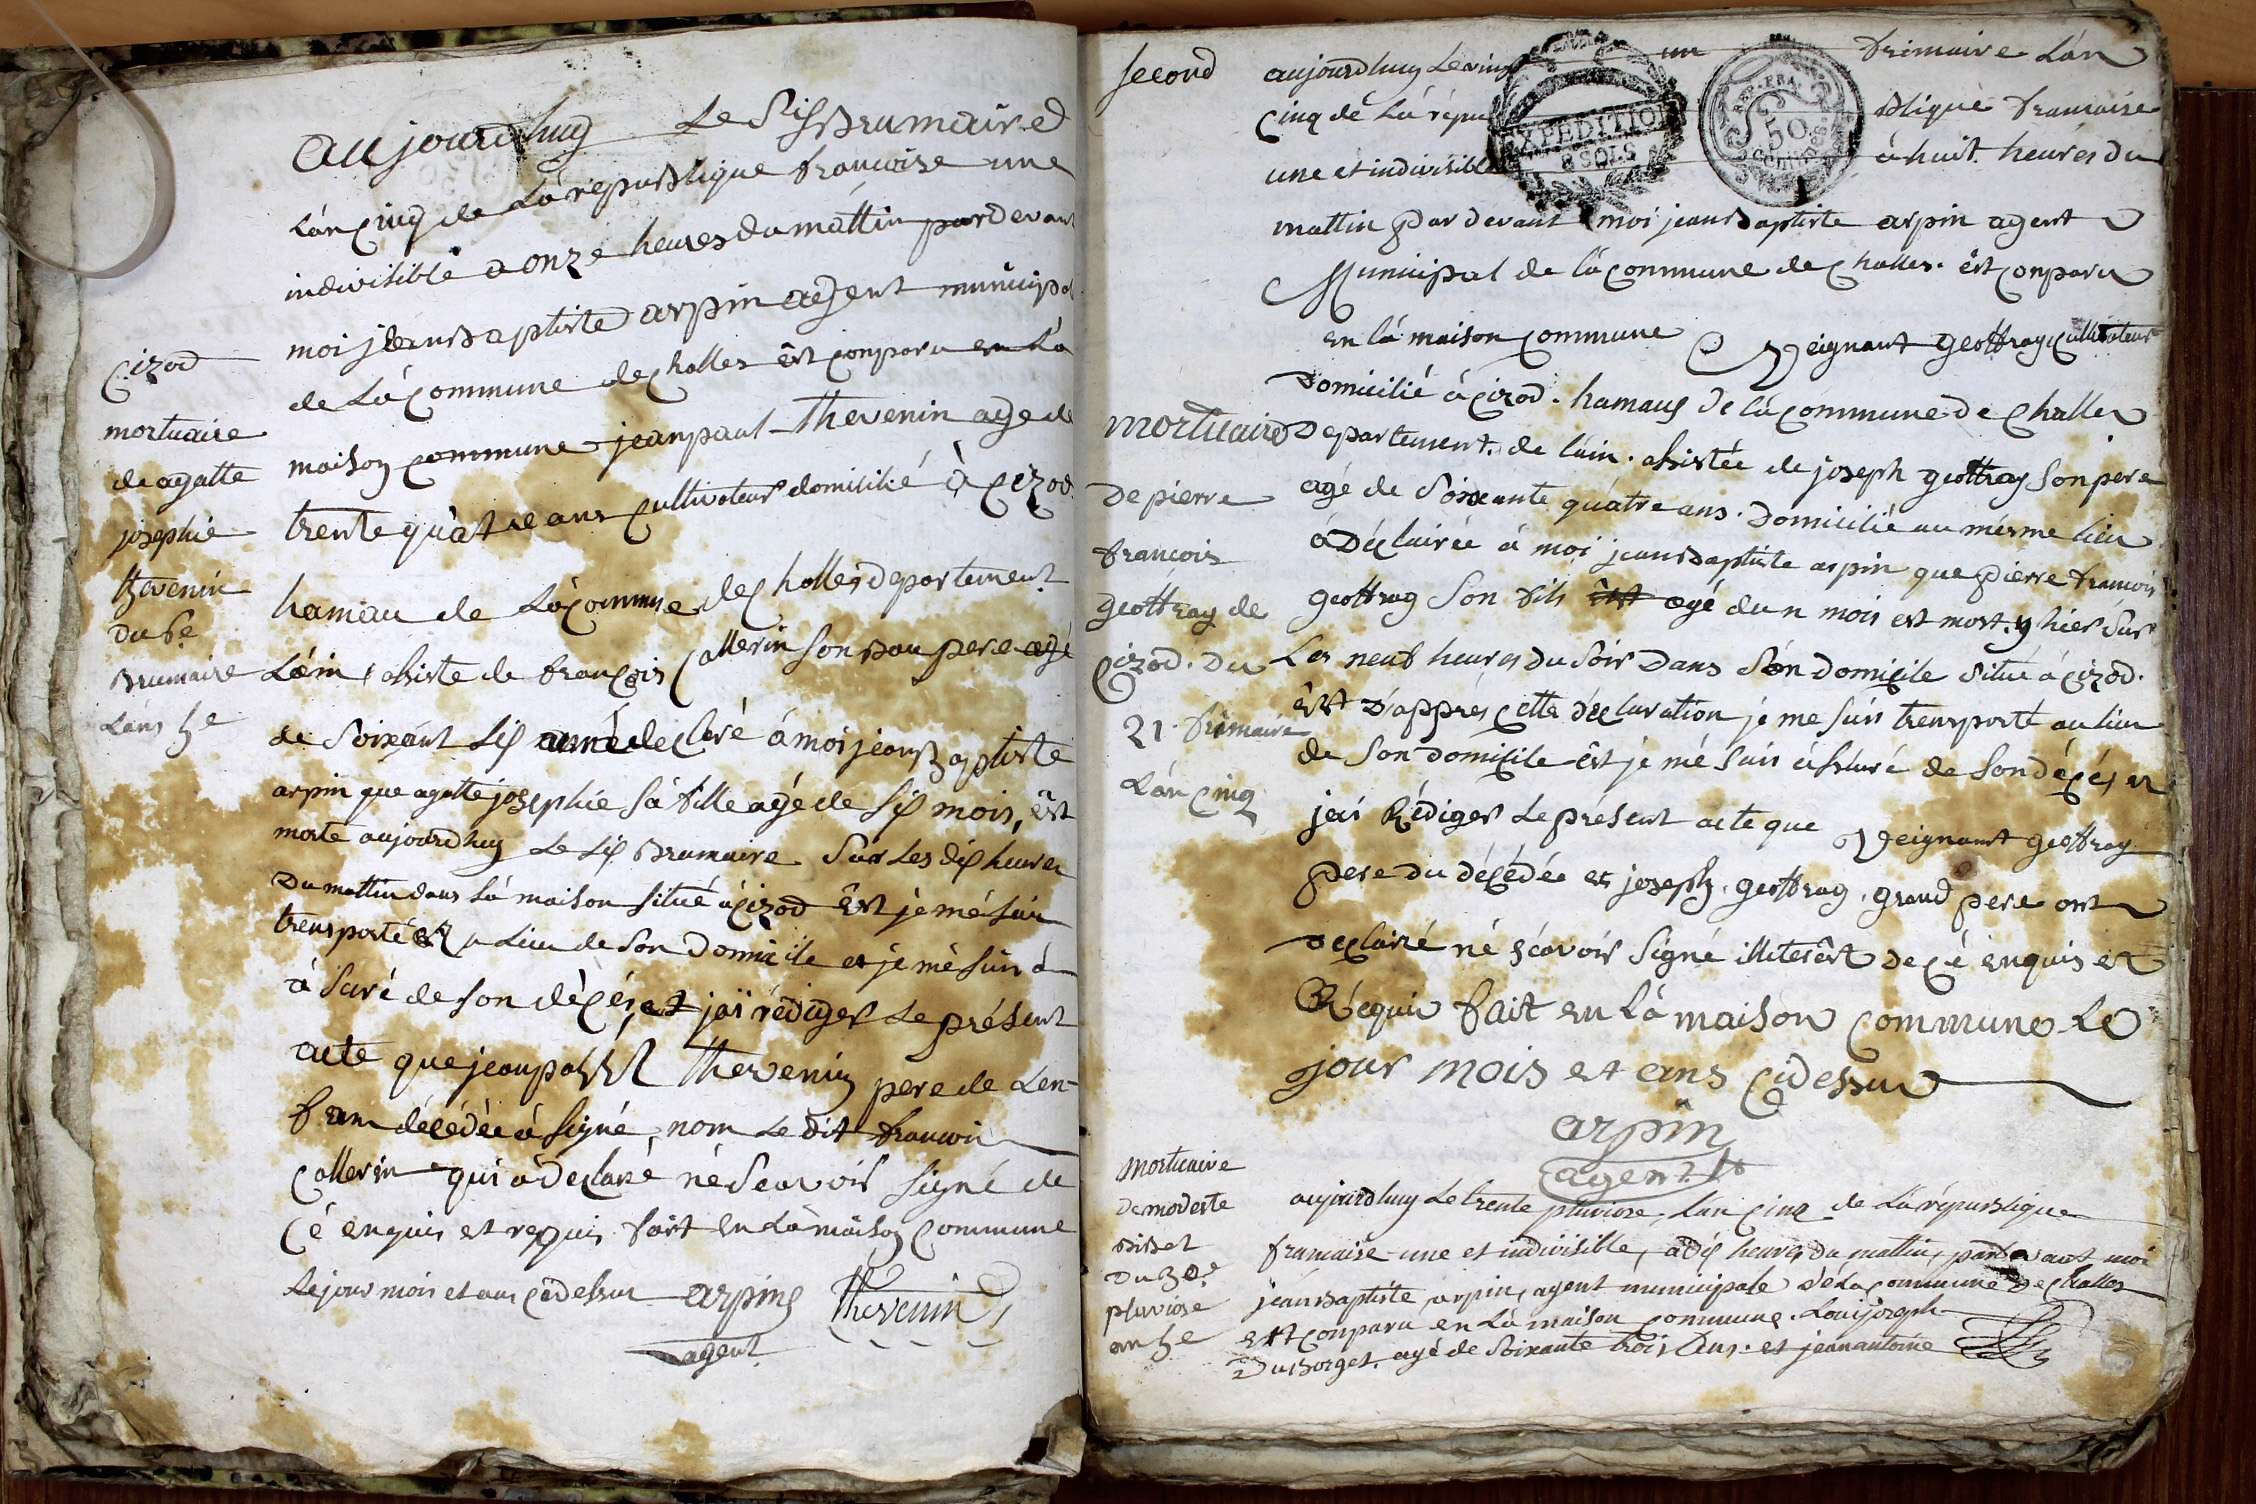 aujourdhuy Le Six Brumaire
Lan cinq de La republique francoise une
indivisible a onze heures du mattin pardevant
moi jean baptiste arpin agent municipal
de La commune de challes est conparu en La
maison commune jean paul thevenin age de
trente quatre ans cultivateur domicilié à cizod
hameau de La commune de challes departement
Lain assiste de françois collerin son beau pere agé
de soixant six année declaré à moi jean baptiste
arpin que agatte josephie sa fille agé de six mois, est
morte aujourdhuy Le six Brumaire sur Les dix heures
du mattin dans sa maison situé à cizod est je mé suis
transporté au Lieu de son domicile et je mé suis a
à suré de son décés, et jai rédiger Le présent
acte que jean paul thevenin pere de Len-
fan décédée à signé, nom Le dit francois
collerin qui à declaré né scavoir signé de
cé enquis et requis fait en La maison commune
Le jour mois et ans cidessus arpin thevenin
agent
cizod
mortuaire
de agatte
josephie
thevenin
du 6e
Brumaire
Lans 5e
second
aujourdhuy Le vingt un frimaire Lan
cinq dé La république francaise
une et indivisible à huit heures du
EXPEDITION
8 SOLS
REP. FRA.
50
CENTIMES
mattin par devant moi jean baptiste arpin agent
Municipal de la commune de challes est conparu
en la maison commune Reignant geoffray cultivateur
Domicilié à cizod hamaux de la commune de challes
Departement de lain assistée de joseph geoffray son pere
agé de soixante quatre ans domicilié au mésme lieu
à déclairée à moi jean baptiste arpin que pierre francois
geoffray son fils est agé dun mois est mort hier sur
Les neuf heures du soir dans son domicile situé à cizod
est d'apprés cette déclaration je me suis transporté au lieu
de son domicile est je mé suis à ssuré de son décés et
jai Rédiger Le présent acte que Reignant geoffray
pere du décédée et joseph geoffray grand pere ont
declairé né scavoir signé illiterêt de cé enquis et
Réquis fait en La maison commune Le
jour mois et ans cidessus
arpin
agent
mortuaire
De pierre
francois
geoffray de
cizod du
21 frimaire
Lan cinq
mortuaire
de modeste
du 30e
pluviose
an 5e
aujourdhuy Le trente pluviose, Lan cinq de La république
francaise une et indivisible, à dix heures du mattin, pardevant moi
jean baptiste arpin, agent municipale dé La commune de challes
est conparu en La maison commune Loui joseph
Duborget, agé de soixante trois ans et jean antoine